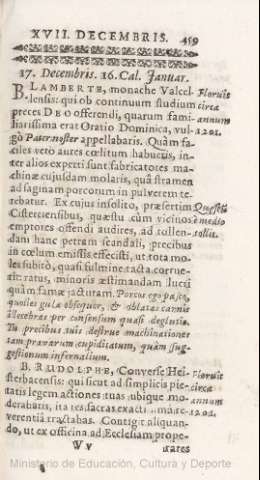 XVII. DECEMBRIS. 459
17. Decembris. 16. Cal. Januar.
B. LAMBERTE, monache Valcel- Floruit
lensis: qui ob continuum studium circa
preces DEO offerendi, quarum fami- annum
liarissima erat Oratio Dominica, vul- 1201.
gò Pater noster appellabaris. Quàm fa-
ciles verò aures cœlitum habueris, in-
ter alios experti sunt fabricatores ma-
chinæ cujusdam molaris, quâ stramen
ad saginam porcorum in pulverem te-
rebatur. Ex cujus insolito, præsertim Quæstū
Cisterciensibus, quæstu cùm vicinos è medio
emptores offendi audires, ad tollen- tollit.
dam hanc petram scandali, precibus
in cœlum emissis effecisti, ut tota mo-
les subitò, quasi fulmine tacta corrue-
rit: ratus, minoris æstimandam lucri
quàm famæ jacturam. Porcos ego pasco,
quoties gulæ obsequor, & oblatas carnis
illecebras per consensum quasi deglutio.
Tu precibus tuis destrue machinationes
tam pravarum cupiditatum, quàm sug-
gestionum infernalium.
B. RUDOLPHE, Converse Hei- Floruit
sterbacensis: qui sicut ad simplicis pie- circa
tatis legem actiones tuas ubique mo- annum
derabaris, ita res sacras exacti
verentiâ tractabas. Contigit aliquan-
do, ut ex officina ad Ecclesiam prope-
V v rares
Ministerio de Educación, Cultura y Deporte